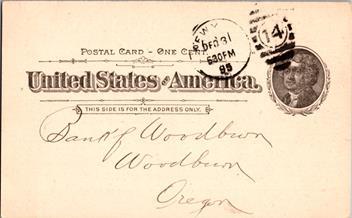 POSTAL CARD – ONE CENT.
United States of America.
THIS SIDE IS FOR THE ADDRESS ONLY.
DEC 31
630PM
95
14
Bank of Woodburn
Woodburn
Oregon